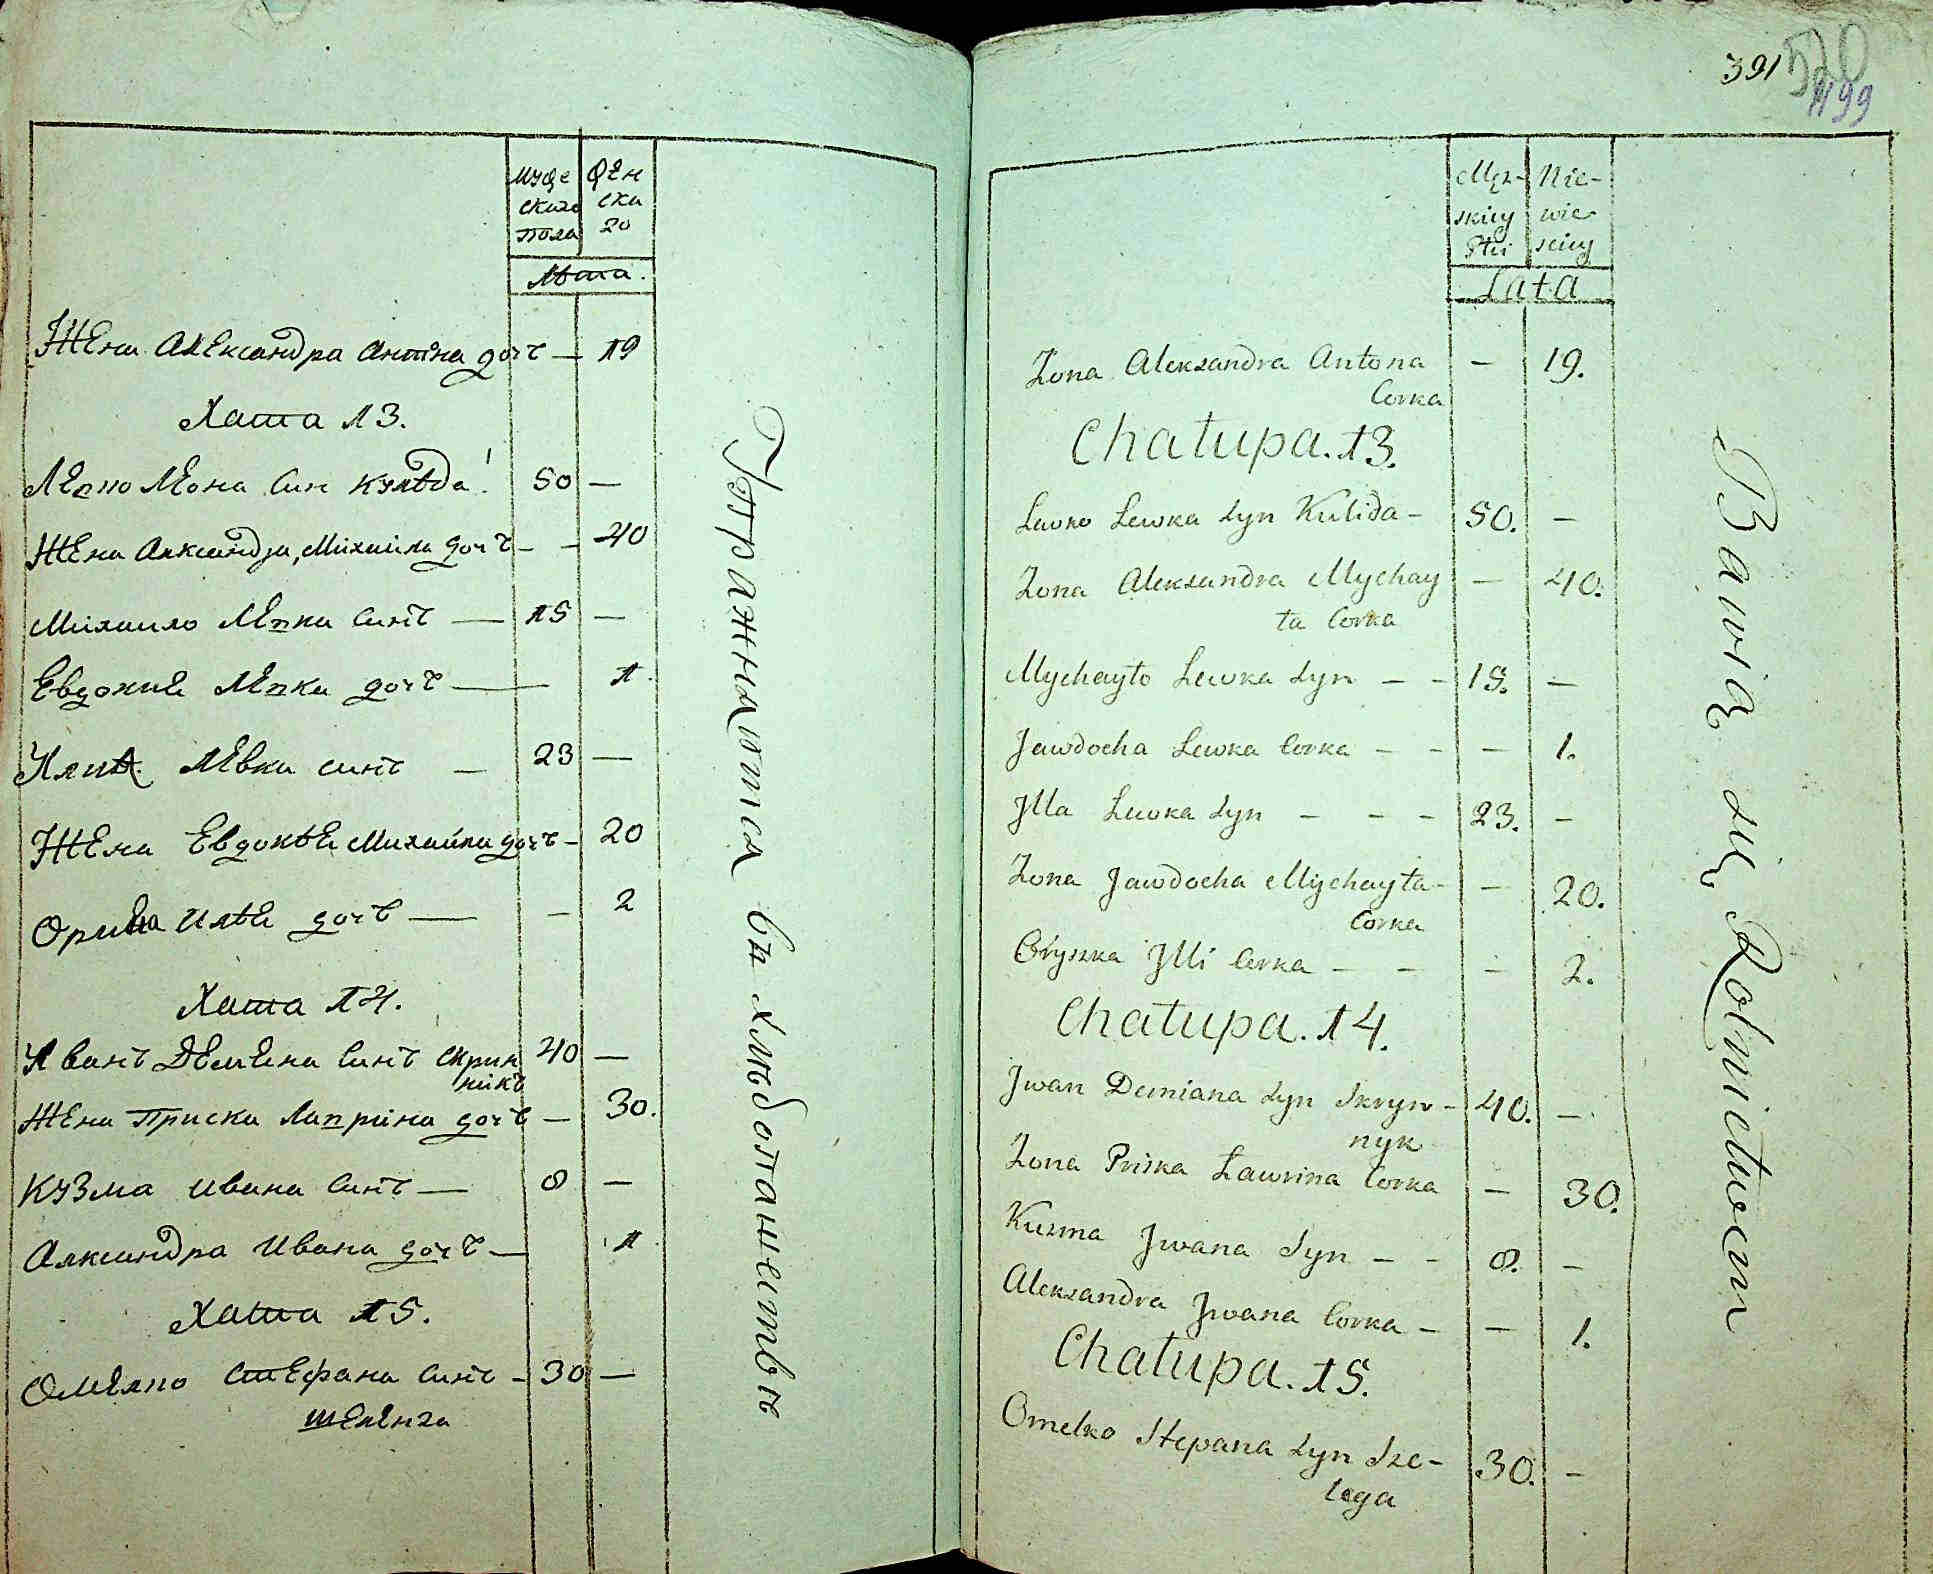 391
520
1199
муже
ского
пола
Жен
ска
го
Лѣта.
Жена Александра Антона дочъ — 19
Хата 13.
Левко Левка син Кулѣда 50 —
Жена Александра, Михайла дочъ — — 40
Михайло Левка синъ — 15 —
Евдокия Левка дочъ — 1.
Илия Левка синъ — 23 —
Жена Евдокѣя Михайла дочъ — 20
Орина Илѣи дочъ — — 2
Хата 14.
Иванъ Демяна синъ Скрин 40 —
никъ
Жена Приска Лаврина дочъ — 30.
Кузма Ивана синъ — 8 —
Александра Ивана дочъ — 1
Хата 15.
Омелко Стефана синъ — 30 —
Шеленга
Упражняются въ хлѣбопашествѣ
Męz-
skiey
Płci
Nie-
wie-
sciey
Lata
Zona Aleksandra Antona — 19.
Corka
Chatupa. 13.
Lewko Lewka Syn Kulida — 50. —
Zona Aleksandra Mychay — 40.
ła Corka
Mychayło Lewka Syn — — 15. —
Jawdocha Lewka Corka — — — 1.
Jlla Lewka Syn — — — 23. —
Zona Jawdocha Mychayła — — 20.
Corka
Oryszka Jlli Corka — — — 2.
Chatupa. 14.
Jwan Demiana Syn Skryn — 40. —
nyk
Zona Priska Ławrina Corka — 30.
Kuzma Jwana Syn — — 8. —
Aleksandra Jwana Corka — — 1.
Chatupa. 15.
Omelko Stepana Syn Sze- 30. —
lega
Bawią się Rolnictwem